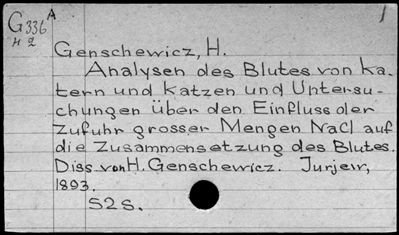 G336 A
H 2
1
Genschewicz, H.
Analysen des Blutes von Ka-
tern und Katzen und Untersu-
chungen über den Einfluss der
Zufuhr grosser Mengen NaCl auf
die Zusammensetzung des Blutes.
Diss. von H. Genschewicz. Jurjew,
1893.
52 s.